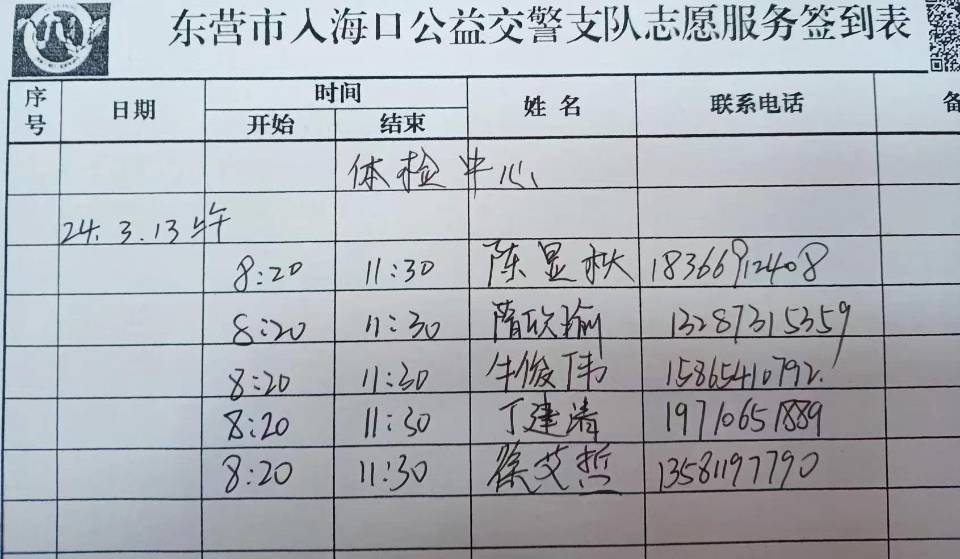 东营市入海口公益交警支队志愿服务签到表
序号 日期 时间 姓名 联系电话 备
开始 结束
体检中心
24.3.13上午
8:20 11:30 陈显秋 18366912408
8:20 11:30 隋欣瑜 13287315359
8:20 11:30 牛俊伟 15865410792.
8:20 11:30 丁建清 19710651889
8:20 11:30 徐艾哲 13581197790